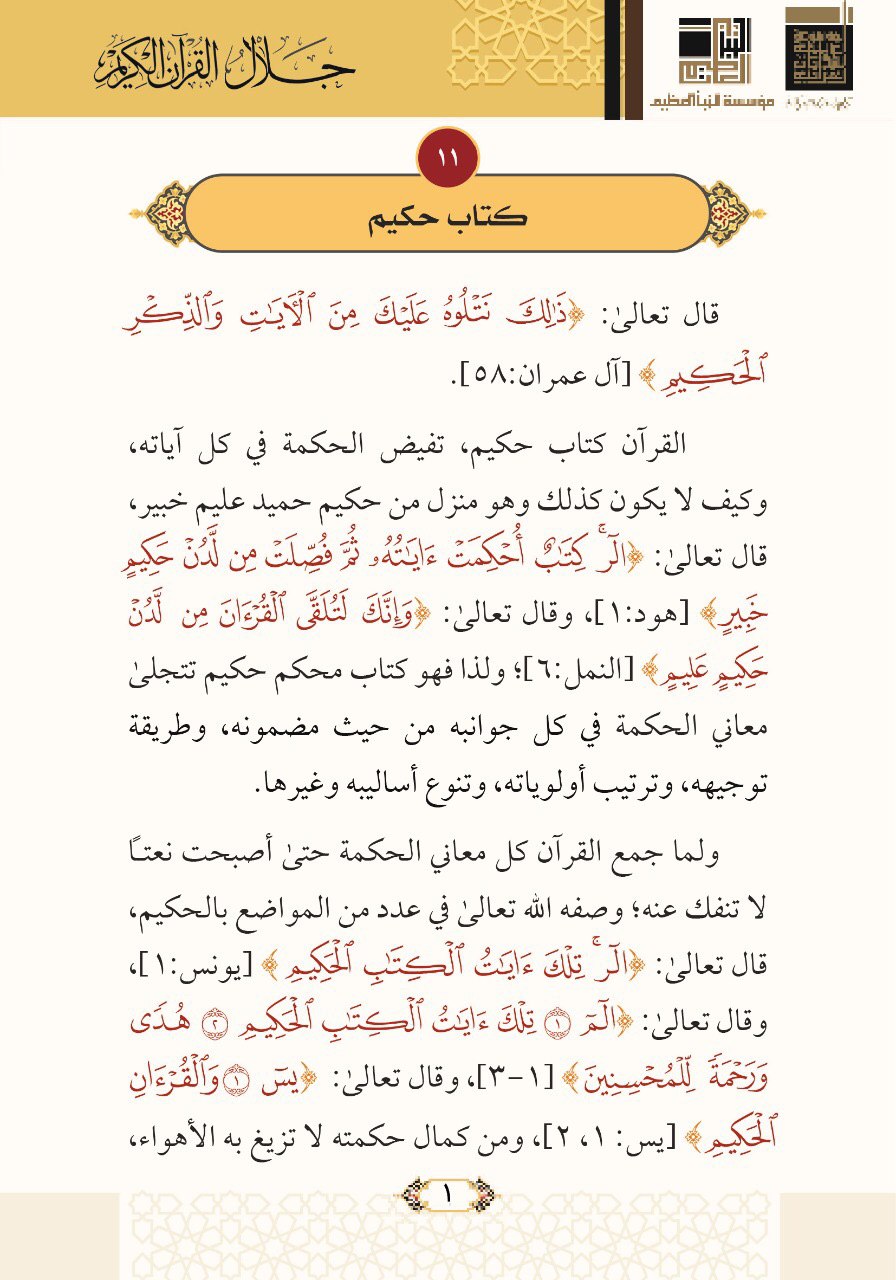 جلال القرآن الكريم
النبأ العظيم
مؤسسة النبأ العظيم
١١
كتاب حكيم
قال تعالىٰ: ﴿ذَٰلِكَ نَتۡلُوهُ عَلَيۡكَ مِنَ ٱلۡأٓيَٰتِ وَٱلذِّكۡرِ
ٱلۡحَكِيمِ ﴾ [آل عمران:٥٨].
القرآن كتاب حكيم، تفيض الحكمة في كل آياته،
وكيف لا يكون كذلك وهو منزل من حكيم حميد عليم خبير،
قال تعالىٰ: ﴿الٓرۚ كِتَٰبٌ أُحۡكِمَتۡ ءَايَٰتُهُۥ ثُمَّ فُصِّلَتۡ مِن لَّدُنۡ حَكِيمٍ
خَبِيرٍ﴾ [هود:١]، وقال تعالىٰ: ﴿وَإِنَّكَ لَتُلَقَّى ٱلۡقُرۡءَانَ مِن لَّدُنۡ
حَكِيمٍ عَلِيمٍ﴾ [النمل:٦]؛ ولذا فهو كتاب محكم حكيم تتجلىٰ
معاني الحكمة في كل جوانبه من حيث مضمونه، وطريقة
توجيهه، وترتيب أولوياته، وتنوع أساليبه وغيرها.
ولما جمع القرآن كل معاني الحكمة حتىٰ أصبحت نعتًا
لا تنفك عنه؛ وصفه الله تعالىٰ في عدد من المواضع بالحكيم،
قال تعالىٰ: ﴿الٓرۚ تِلۡكَ ءَايَٰتُ ٱلۡكِتَٰبِ ٱلۡحَكِيمِ ﴾ [يونس:١]،
وقال تعالىٰ: ﴿الٓمٓ ١ تِلۡكَ ءَايَٰتُ ٱلۡكِتَٰبِ ٱلۡحَكِيمِ ٢ هُدٗى
وَرَحۡمَةٗ لِّلۡمُحۡسِنِينَ﴾ [١-٣]، وقال تعالىٰ: ﴿يسٓ ١ وَٱلۡقُرۡءَانِ
ٱلۡحَكِيمِ﴾ [يس: ١، ٢]، ومن كمال حكمته لا تزيغ به الأهواء،
١